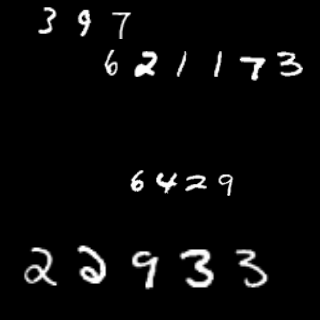 397
621173
6429
22933